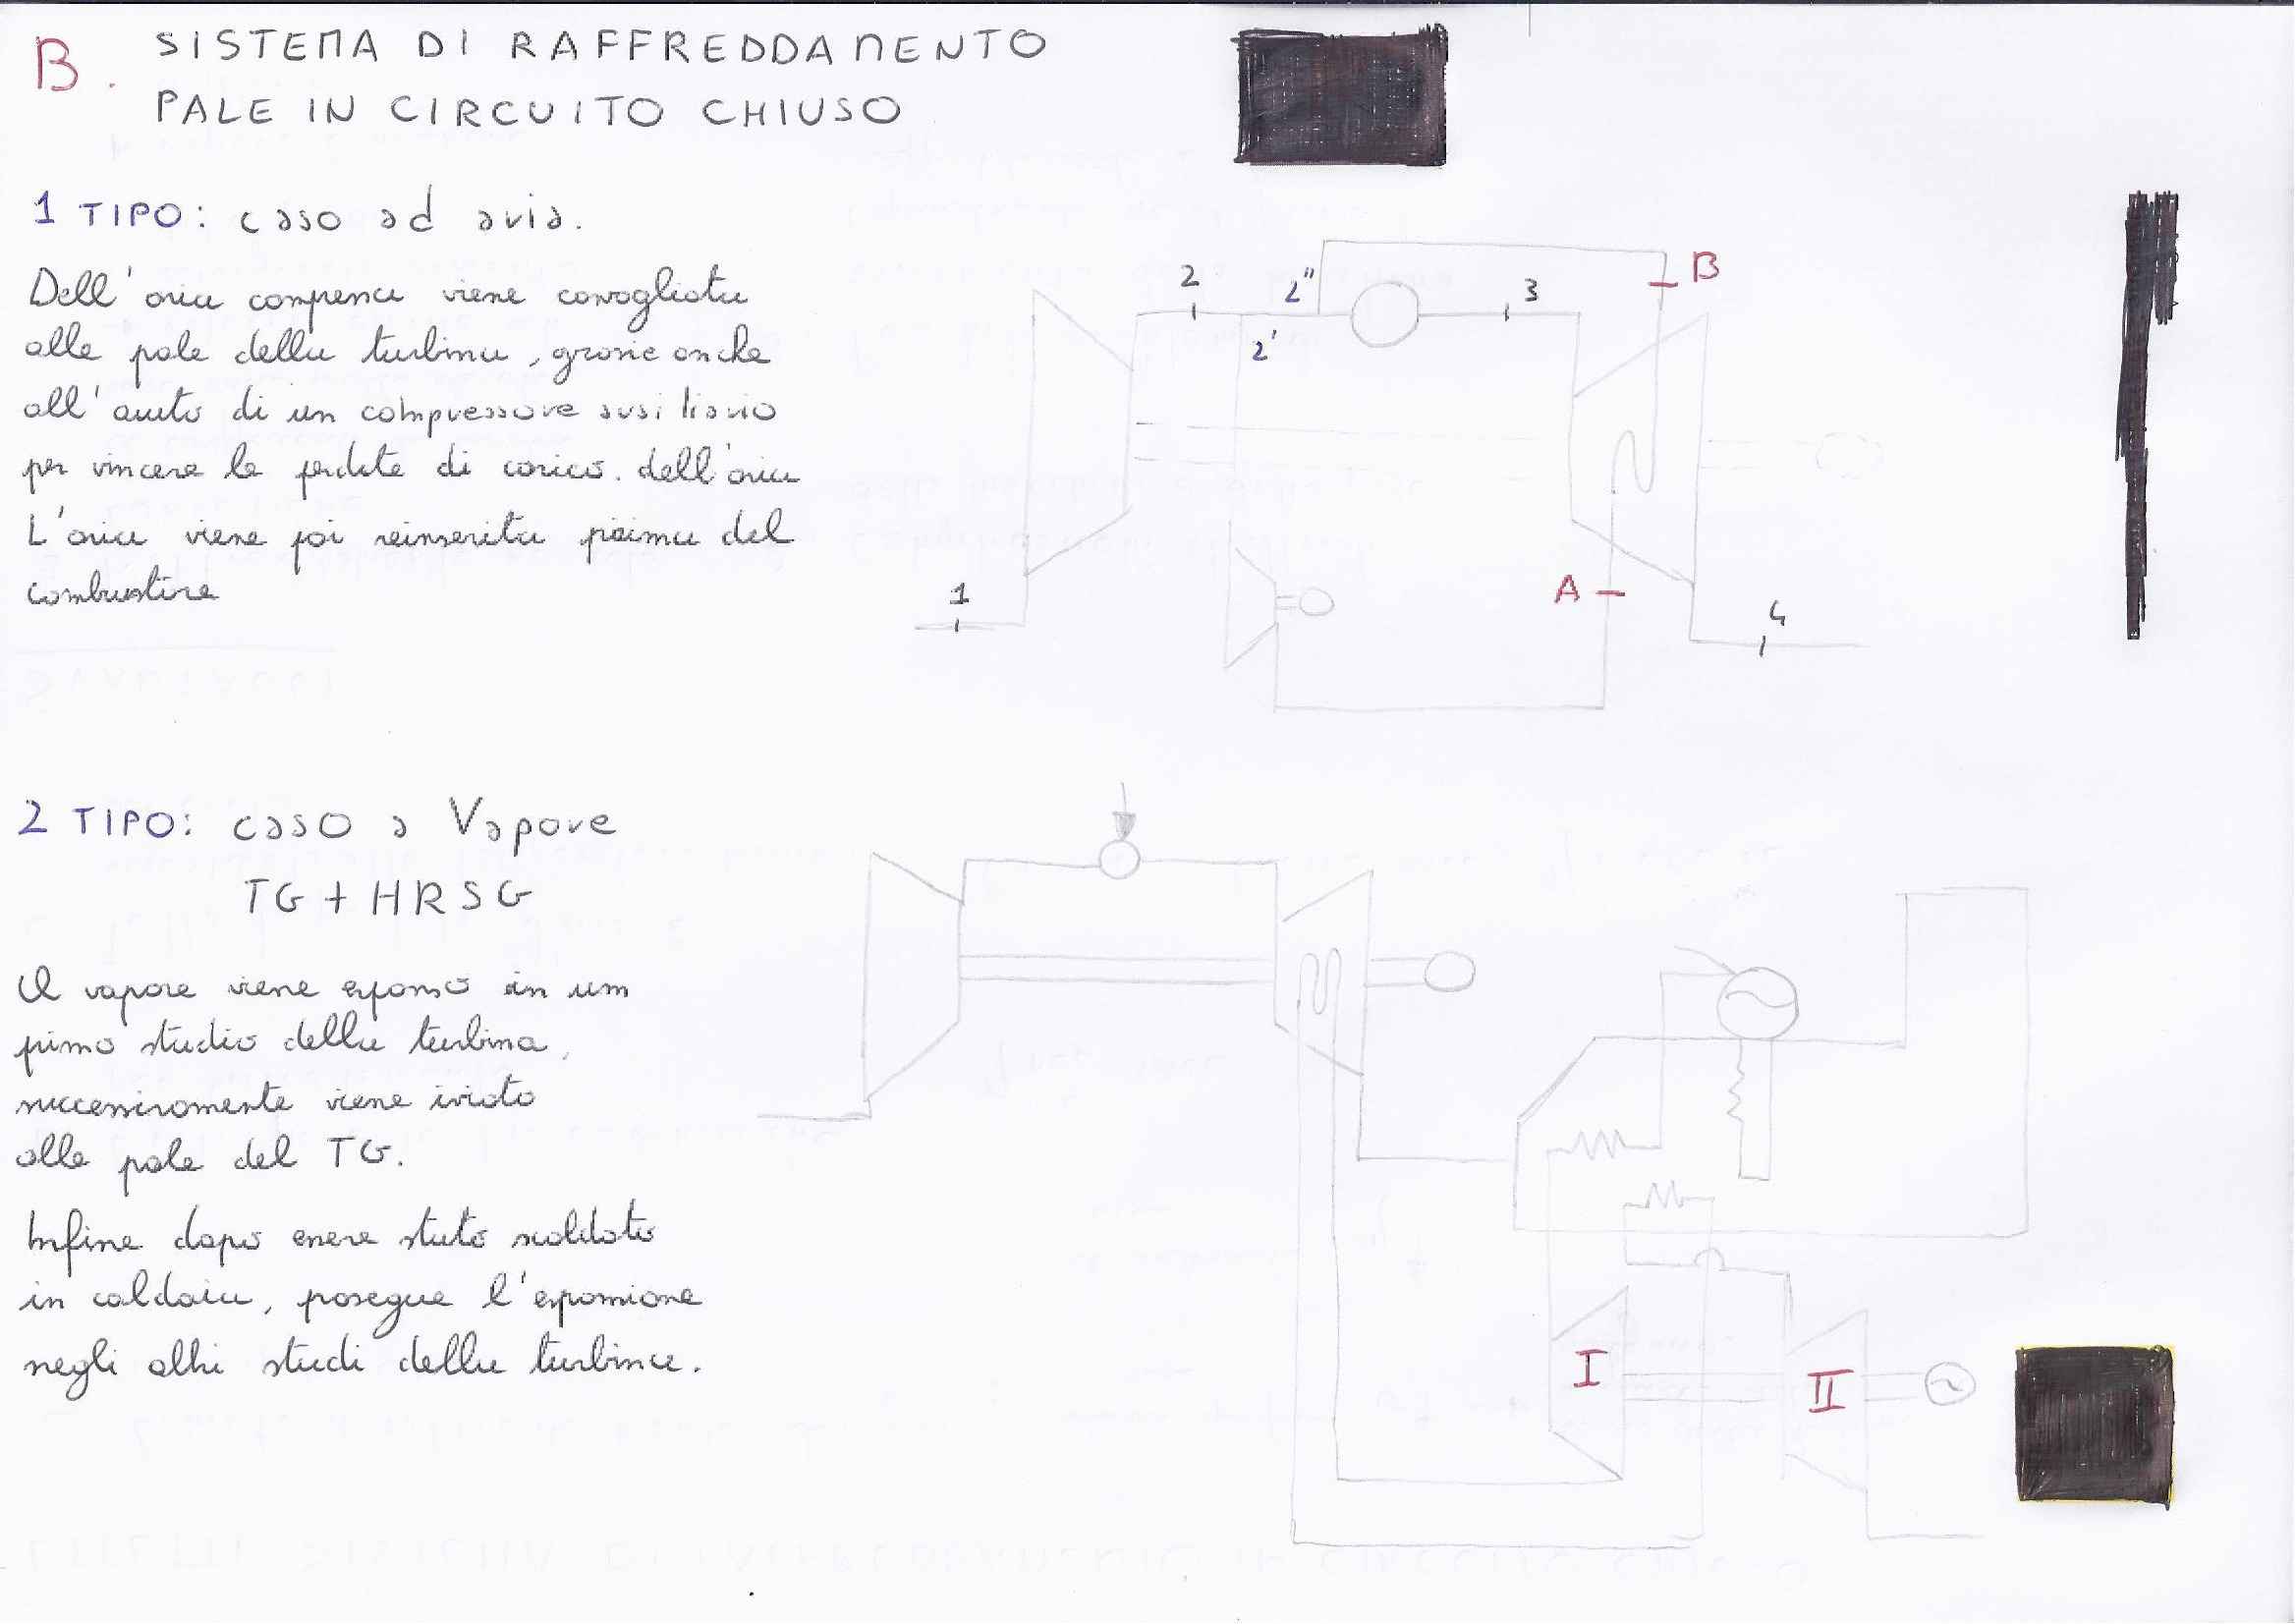 B. SISTEMA DI RAFFREDDAMENTO
PALE IN CIRCUITO CHIUSO
1 TIPO: caso ad aria.
Dell'aria compressa viene convogliata
alle pale della turbina, grazie anche
all'aiuto di un compressore ausiliario
per vincere le perdite di carico. dell'aria
L'aria viene poi reinserita prima del
combustore
1
2
2'
2"
3
B
A
4
2 TIPO: caso a Vapore
TG + HRSG
Il vapore viene espanso in un
primo studio della turbina,
successivamente viene iviato
alle pale del TG.
Infine dopo essere stato scaldato
in caldaia, prosegue l'espansione
negli altri studi della turbina.
I
II